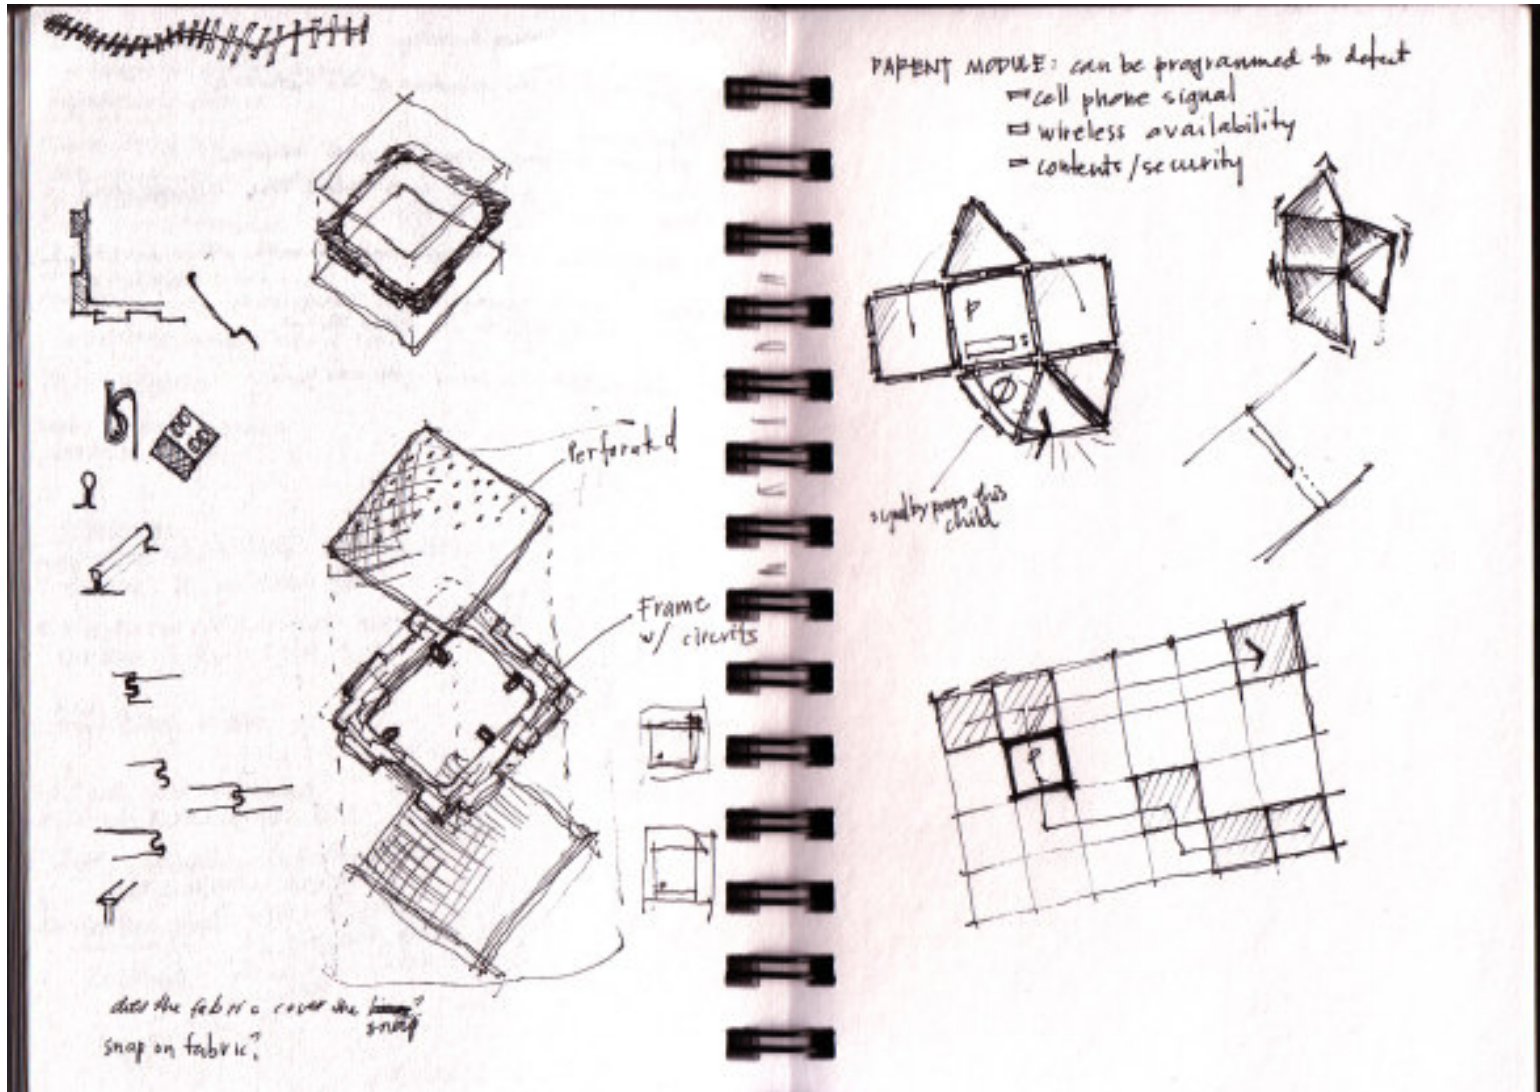 Perforated
Frame
w/ circuits
does the fabric cover the
snap
snap on fabric?
PARENT MODULE: can be programmed to detect
cell phone signal
wireless availability
contents/security
P
s
child
P